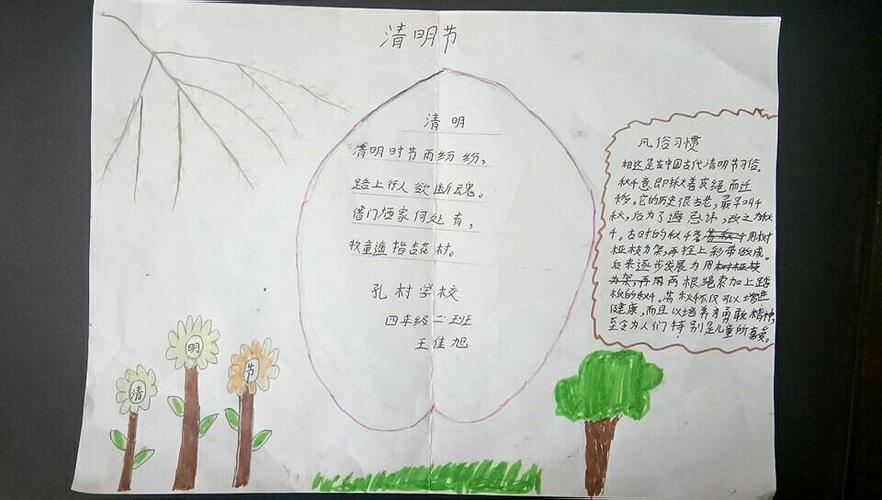 清明节
清明
清明时节雨纷纷,
路上行人欲断魂。
借门酒家何处有,
牧童遥指杏花村。
孔村学校
四年级二班
王佳旭
风俗习惯
相这是在中国古代清明节习俗。
秋千意即揪着皮绳而迁
移。它的历史很古老,最早叫千
秋,后为了避忌讳,改之为秋
千。古时的秋千多用树
桠枝为架,再栓上彩带做成。
后来逐步发展为用
两根绳索加上踏
板的秋千。荡秋千不仅可以增进
健康,而且以培养勇敢精神,
至今为人们特别是儿童所喜爱。
清
明
节